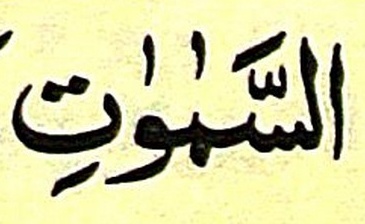 السَّمٰوٰتِ